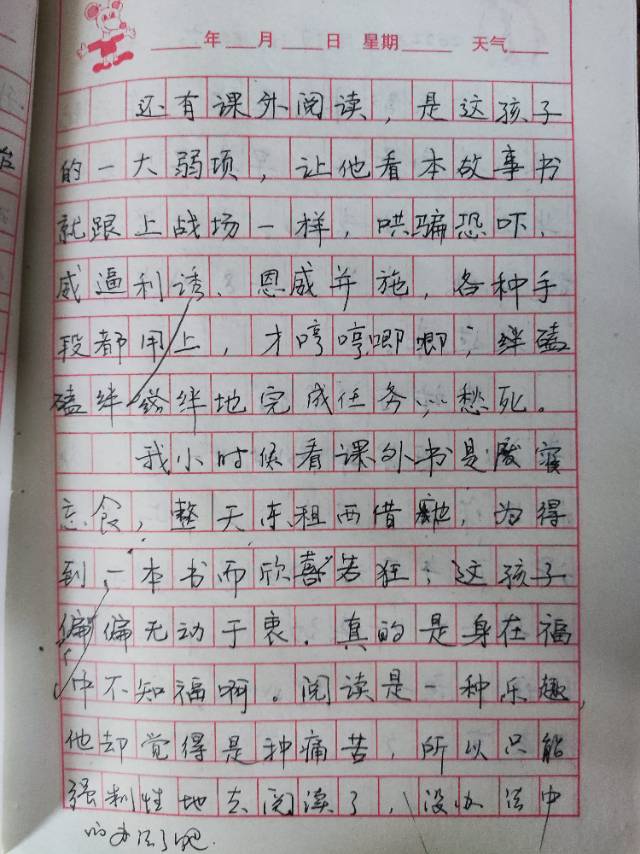 年 月 日 星期 天气
还有课外阅读，是这孩子
的一大弱项，让他看本故事书
就跟上战场一样，哄骗恐吓、
威逼利诱、恩威并施，各种手
段都用上，才哼哼唧唧，绊磕
磕绊绊地完成任务…愁死。
我小时候看课外书是废寝
忘食，整天东租西借地，为得
到一本书而欣喜若狂；这孩子
偏偏无动于衷．真的是身在福
中不知福啊。阅读是一种乐趣，
他却觉得是种痛苦，所以只能
强制性地去阅读了，没办法中
的办法了吧．